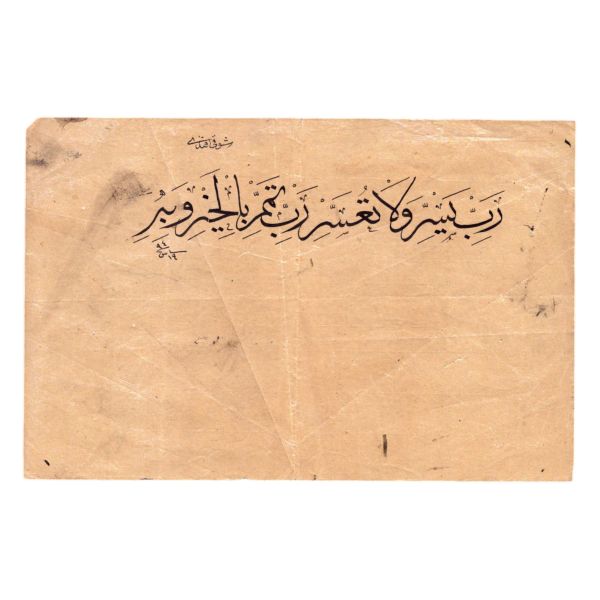 شوقی افندی
رَبِّ يَسِّرْ وَلَا تُعَسِّرْ رَبِّ تَمِّمْ بِالْخَيْرِ وَبِهِ